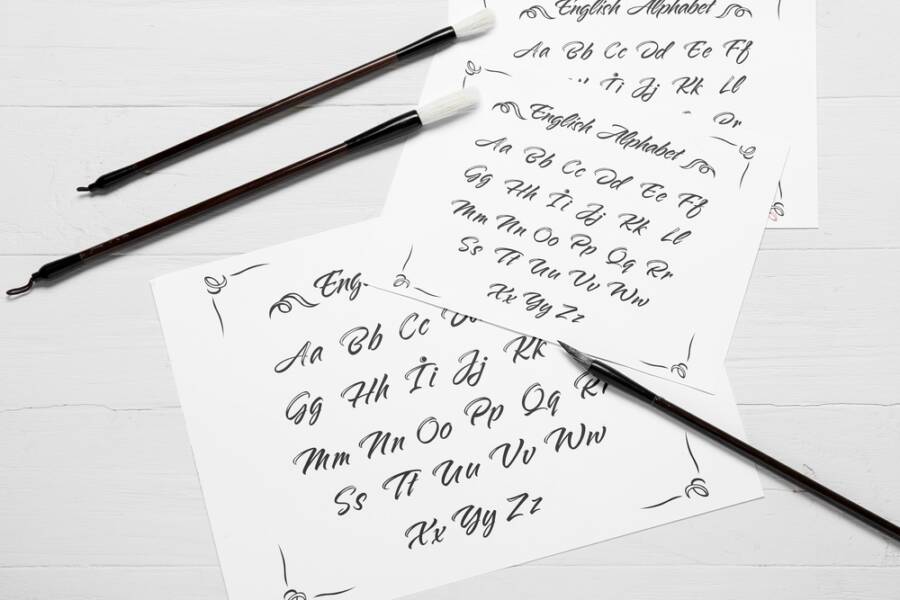 English Alphabet
Aa Bb Cc Dd Ee Ff
İi Jj Kk Ll
Rr
English Alphabet
Aa Bb Cc Dd Ee Ff
Gg Hh İi Jj Kk Ll
Mm Nn Oo Pp Qq Rr
Ss Tt Uu Vv Ww
Xx Yy Zz
Eng
Aa Bb Cc
Gg Hh İi Jj Kk
Mm Nn Oo Pp Qq Rr
Ss Tt Uu Vv Ww
Xx Yy Zz